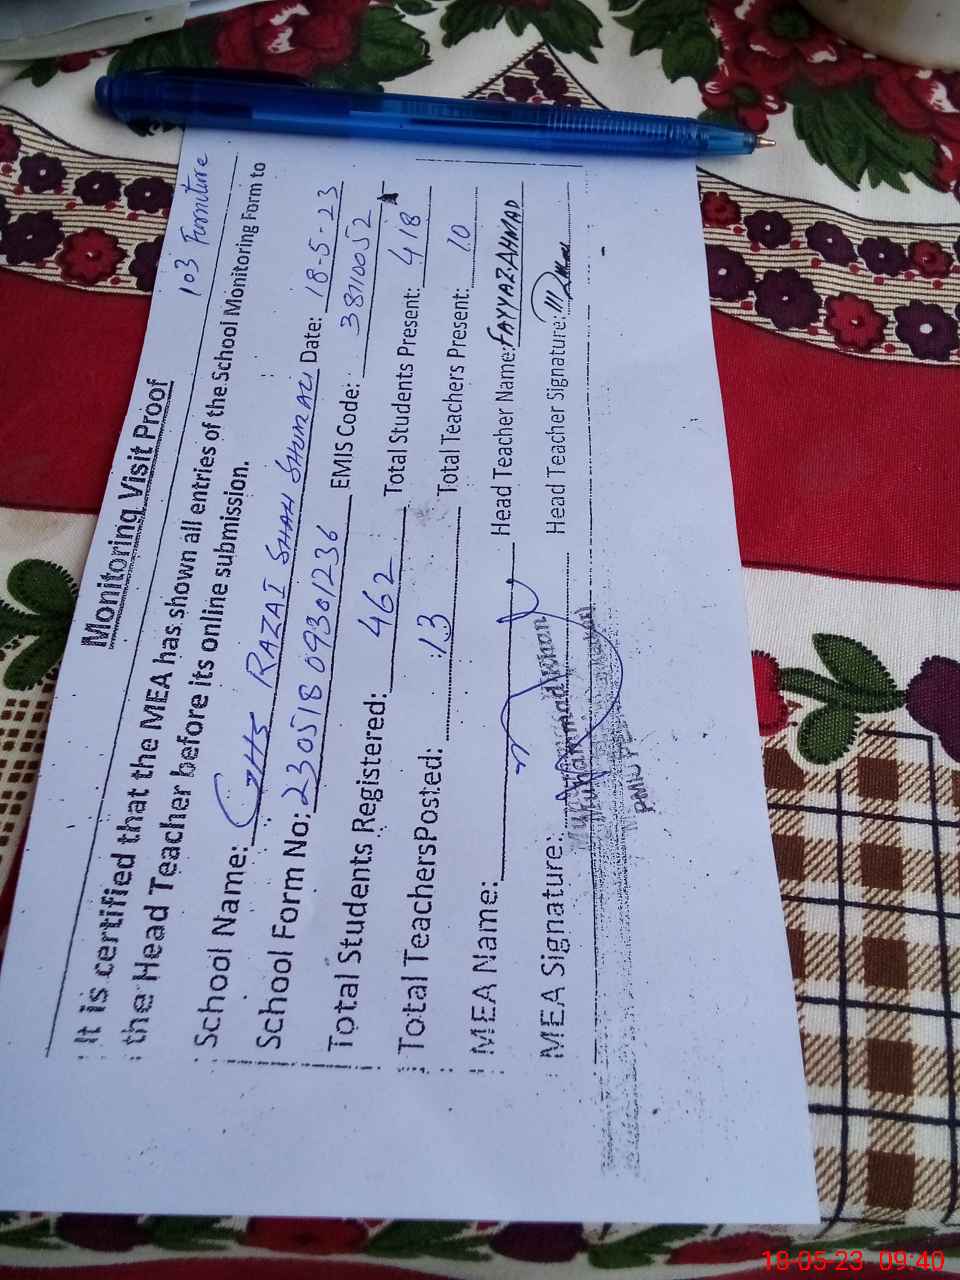 103 Furniture
Monitoring Visit Proof
It is certified that the MEA has shown all entries of the School Monitoring Form to
the Head Teacher before its online submission.
School Name: GHS RAZAI SHAH SHUMALI Date: 18-5-23
School Form No: 230518 09301236 EMIS Code: 38110052
Total Students Registered: 462 Total Students Present: 418
Total TeachersPosted: 13 Total Teachers Present: 10
MEA Name: Head Teacher Name: FAYYAZ AHMAD
MEA Signature: Head Teacher Signature:
Muhammad
18-05-23 09:40